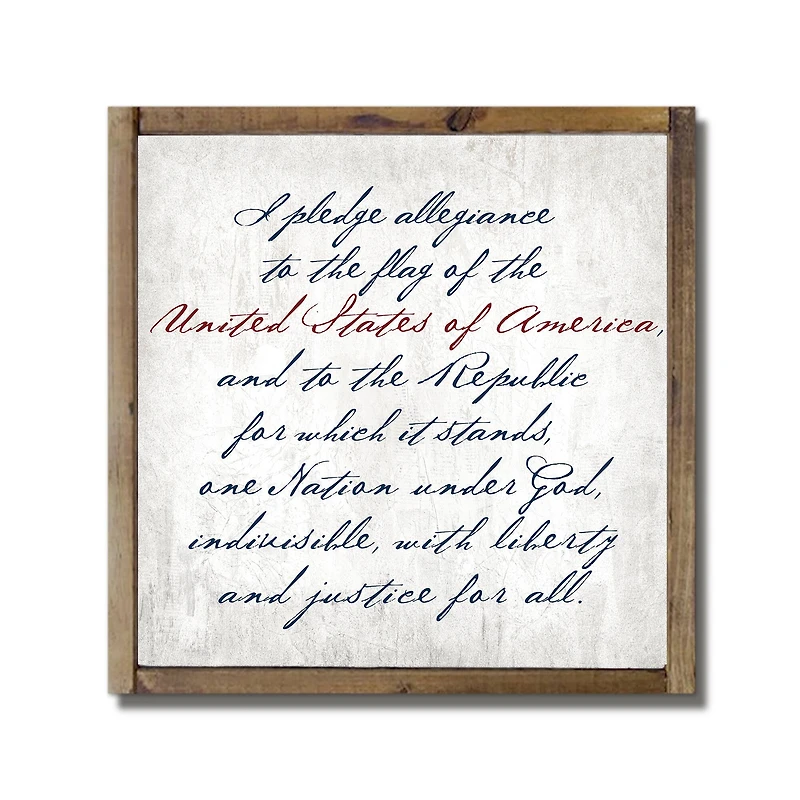 I pledge allegiance
to the flag of the
United States of America,
and to the Republic
for which it stands,
one Nation under God,
indivisible, with liberty
and justice for all.